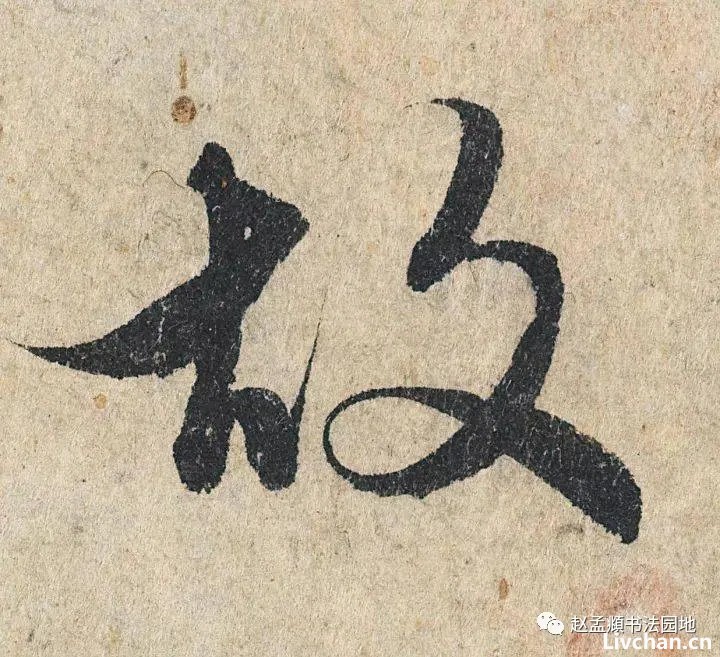 故
赵孟頫书法园地
Livchan.cn